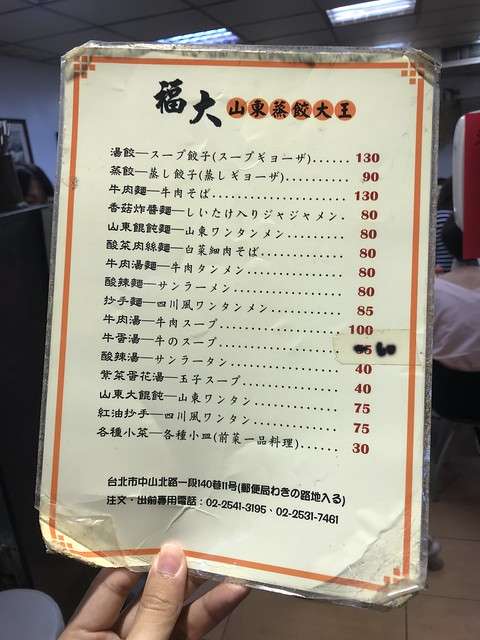 福大 山東蒸餃大王
湯餃—スープ餃子(スープギョーザ)...... 130
蒸餃—蒸し餃子(蒸しギョーザ).......... 90
牛肉麵—牛肉そば...................... 130
香菇炸醬麵—しいたけ入りジャジャメン. 80
山東餛飩麵—山東ワンタンメン.......... 80
酸菜肉絲麵—白菜細肉そば.............. 80
牛肉湯麵—牛肉タンメン................ 80
酸辣麵—サンラーメン.................. 80
抄手麵—四川風ワンタンメン............ 85
牛肉湯—牛肉スープ.................... 100
牛蛋湯—牛のスープ.................... 60
酸辣湯—サンラータン.................. 40
紫菜蛋花湯—玉子スープ................ 40
山東大餛飩—山東ワンタン.............. 75
紅油抄手—四川風ワンタン.............. 75
各種小菜—各種小皿(前菜一品料理)...... 30
台北市中山北路一段140巷11号(郵便局わきの路地入る)
注文・出前專用電話:02-2541-3195、02-2531-7461